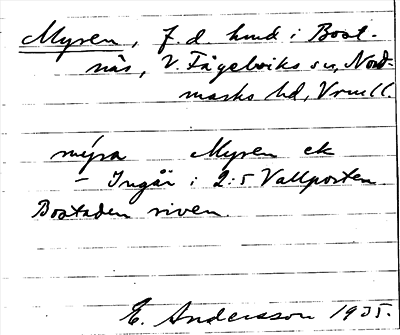 Myren, f.d. hmd i Bost-
näs, V. Fågelviks sn, Nord-
marks hd, Vrmll.
mýra Myren ek
– Ingår i 2:5 Vallporten
Bostaden riven.
E. Andersson 1935.